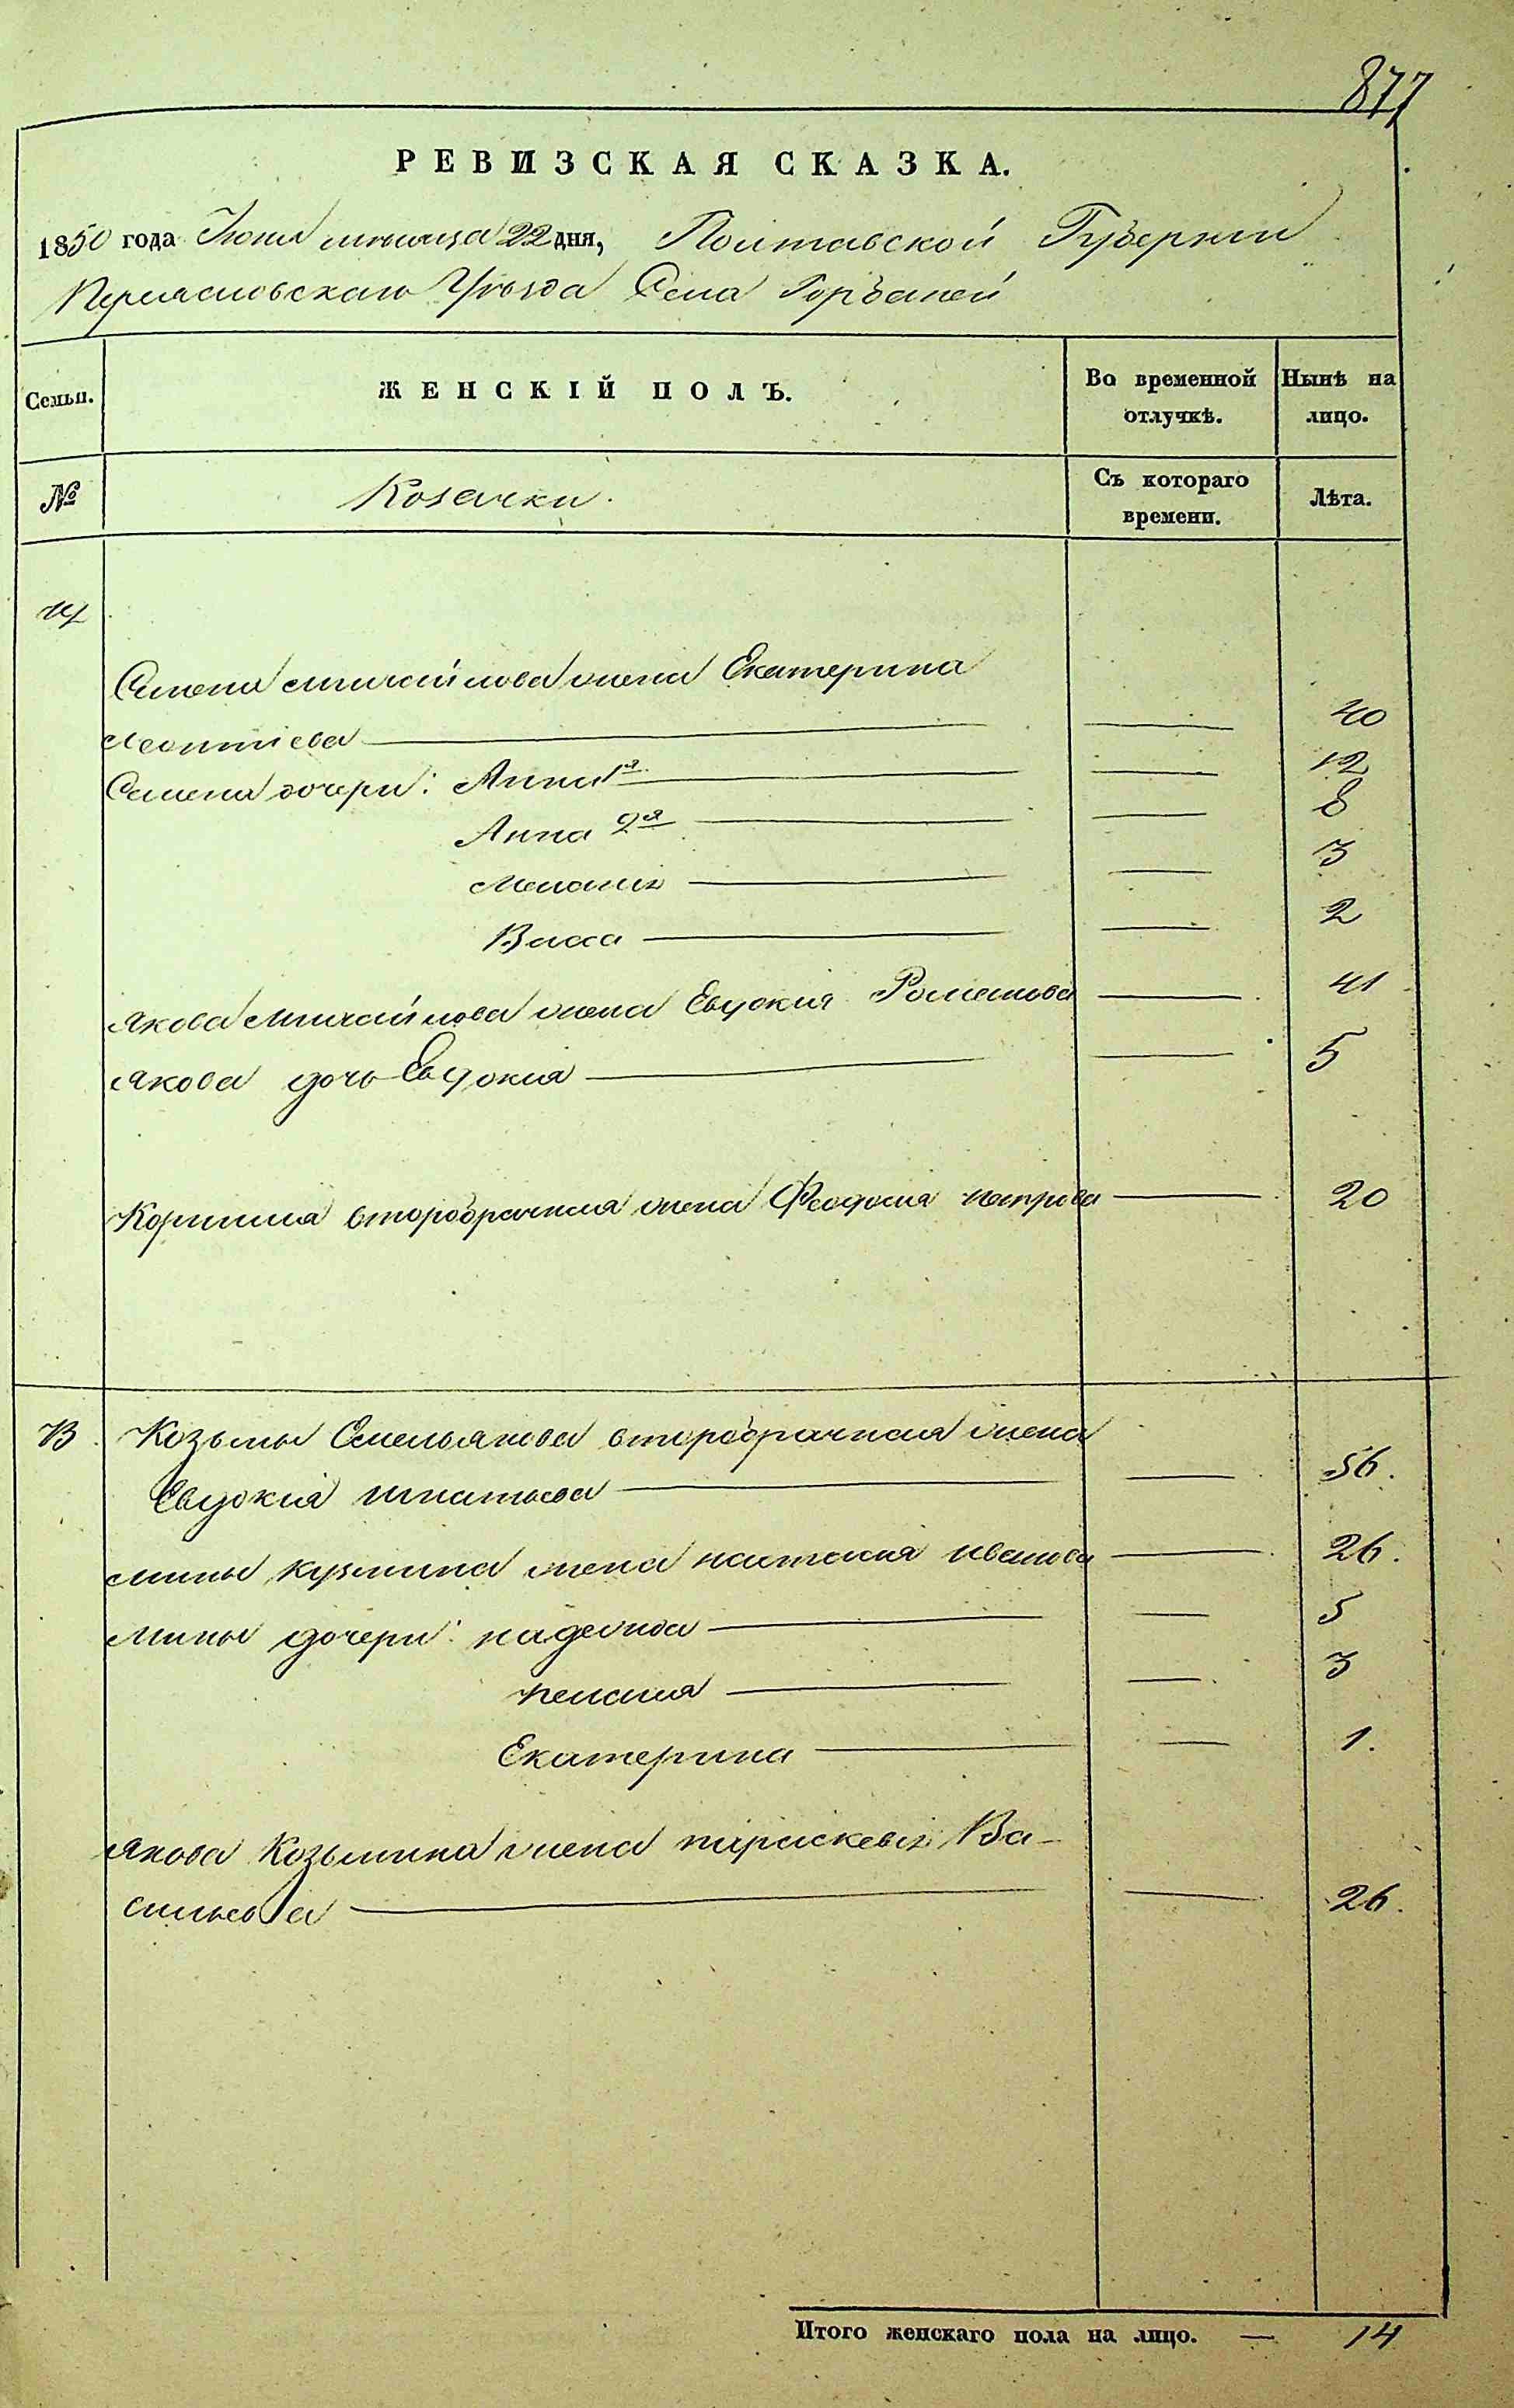 877
РЕВИЗСКАЯ СКАЗКА.
1850 года Июня месяца 22 дня, Полтавской Губернии
Переясловскаго Уѣзда Села Горбаней
Семьи. ЖЕНСКІЙ ПОЛЪ. Во временной отлучкѣ. Нынѣ на лицо.
№ Козачки. Съ котораго времени. Лѣта.
Семена Михайлова жена Екатерина
Леонтіева — — 40
Семена дочери: Анна 1я — — 12
Анна 2я — — 8
Меланія — — 3
Васса — — 2
Якова Михайлова жена Евдокия Романова — 41
Якова дочь Евдокия — — 5
Корнилия второбрачная жена Феодосия Петрова — 20
13 Козьмы Емельянова второбрачная жена
Евдокия Игнатьева — — 56.
Мины Кузмина жена Наталия Иванова — 26.
Мины дочери: Надежда — — 5
— — 3
Екатерина — — 1.
Якова Козьмина жена Параскевія Ва-
сильева — — 26.
Итого женскаго пола на лицо. — 14